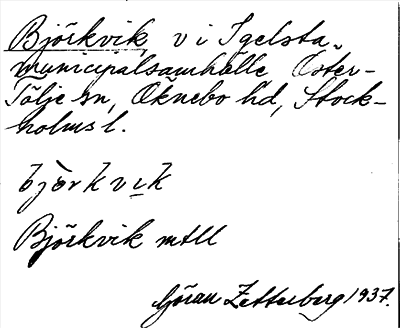 Björkvik, v i Igelsta
municipalsamhälle, Öster-
Tälje sn, Öknebo hd, Stock-
holms l.
björkvik
Björkvik mtll
Göran Zetterberg 1937.